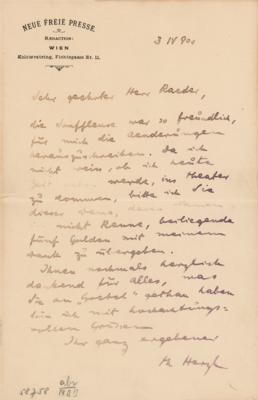 NEUE FREIE PRESSE
REDACTION:
WIEN
Kolowratring, Fichtegasse Nr. 11.
3 IV 90
Sehr geehrter Herr Raeder,
die Souffleuse war so freundlich,
für mich die Aenderungen
herauszuschreiben. Da ich
nicht weiss, ob ich heute
werde, ins Theater
zu kommen, bitte ich Sie
dieser Dame, deren Namen
ich nicht kenne, beiliegende
fünf Gulden mit meinem
Dank zu übergeben.
Ihnen nochmals herzlich
dankend für alles, was
Sie an "Gretel" gethan haben
bin ich mit hochachtungs-
vollem Grüssen
Ihr ganz ergebener
Th. Herzl
58758